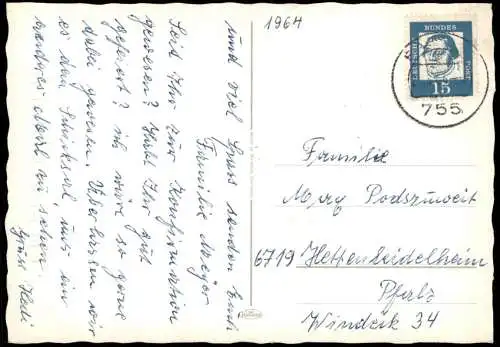 und viel Grüss senden Euch
Familie Meyer
Seid Ihr zur Konfirmation
gewesen? Habt Ihr gut
gefeiert? ich wäre so gerne
dabei gewesen. Überlassen wir
es dem Schicksal, uns ein
andres Mal zu sehen.
Gruss Hedi
1964
DEUTSCHE BUNDESPOST
15
755
Familie
Merg Podszuweit
6719 Hettenleidelheim
Pfalz
Windeck 34